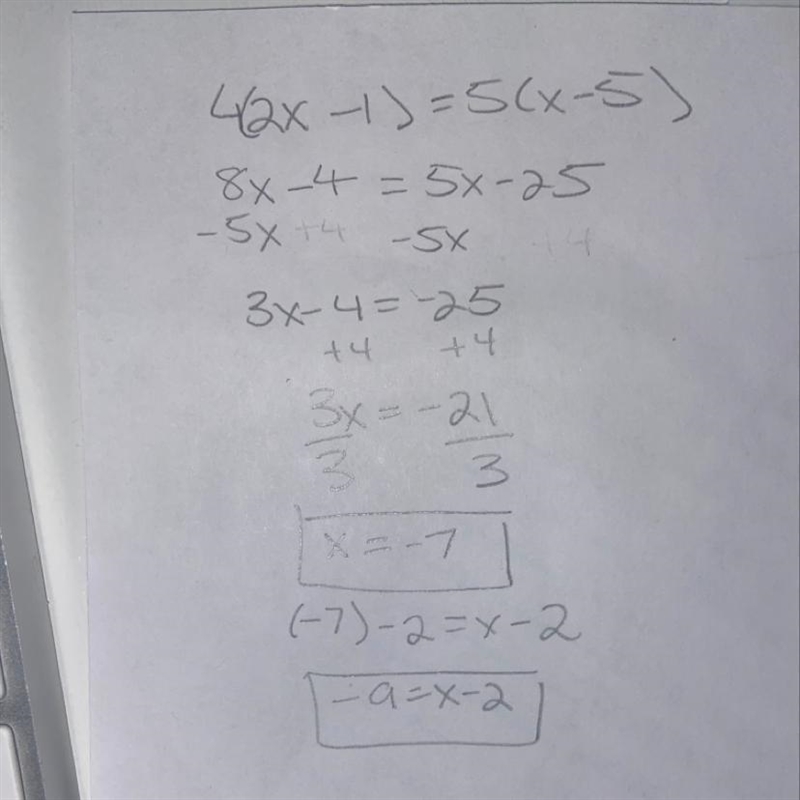 4(2x - 1) = 5(x - 5)
8x - 4 = 5x - 25
-5x +4 -5x +4
3x - 4 = -25
+4 +4
3x = -21
3 3
x = -7
(-7) - 2 = x - 2
-9 = x - 2